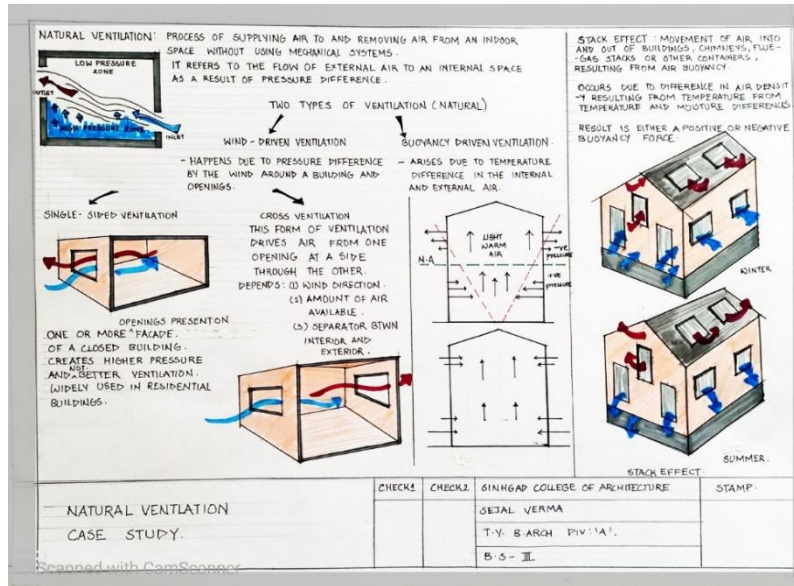 NATURAL VENTILATION: PROCESS OF SUPPLYING AIR TO AND REMOVING AIR FROM AN INDOOR
SPACE WITHOUT USING MECHANICAL SYSTEMS.
IT REFERS TO THE FLOW OF EXTERNAL AIR TO AN INTERNAL SPACE
AS A RESULT OF PRESSURE DIFFERENCE.
LOW PRESSURE
ZONE
OUTLET
HIGH PRESSURE ZONE
INLET
TWO TYPES OF VENTILATION (NATURAL)
WIND-DRIVEN VENTILATION
- HAPPENS DUE TO PRESSURE DIFFERENCE
BY THE WIND AROUND A BUILDING AND
OPENINGS.
BUOYANCY DRIVEN VENTILATION.
- ARISES DUE TO TEMPERATURE
DIFFERENCE IN THE INTERNAL
AND EXTERNAL AIR.
SINGLE-SIDED VENTILATION
OPENINGS PRESENT ON
ONE OR MORE ^ FACADE.
OF A CLOSED BUILDING.
CREATES HIGHER PRESSURE
NOT
AND ^ BETTER VENTILATION.
WIDELY USED IN RESIDENTIAL
BUILDINGS.
CROSS VENTILATION
THIS FORM OF VENTILATION
DRIVES AIR FROM ONE
OPENING AT A SIDE
THROUGH THE OTHER.
DEPENDS: (1) WIND DIRECTION.
(2) AMOUNT OF AIR
AVAILABLE.
(3) SEPARATOR BTWN
INTERIOR AND
EXTERIOR.
LIGHT
WARM
AIR
N.A
-ve
PRESSURE
+ve
PRESSURE
STACK EFFECT: MOVEMENT OF AIR INTO
AND OUT OF BUILDINGS, CHIMNEYS, FLUE-
-GAS STACKS OR OTHER CONTAINERS,
RESULTING FROM AIR BUOYANCY.
OCCURS DUE TO DIFFERENCE IN AIR DENSIT
-Y RESULTING FROM TEMPERATURE FROM
TEMPERATURE AND MOISTURE DIFFERENCES
RESULT IS EITHER A POSITIVE OR NEGATIVE
BUOYANCY FORCE.
WINTER
SUMMER.
STACK EFFECT.
NATURAL VENTLATION
CASE STUDY.
CHECK1
CHECK2
SINHGAD COLLEGE OF ARCHITECTURE
STAMP.
SEJAL VERMA
T.Y. B.ARCH DIV: 'A'.
B.S- III
Scanned with CamScanner